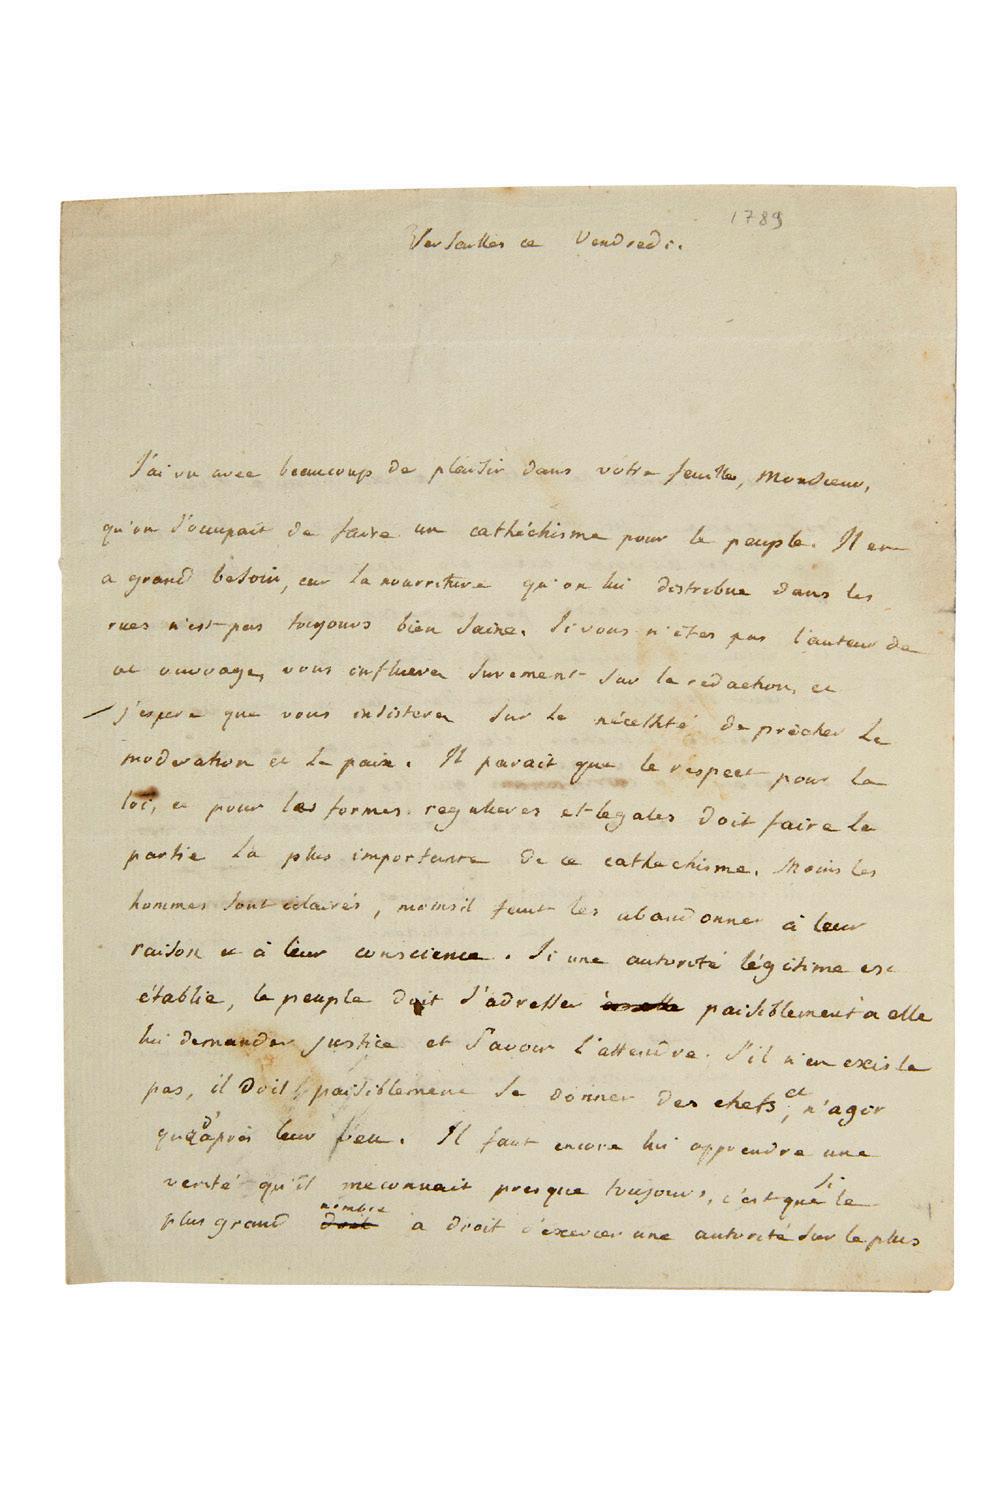 1789
Versailles ce Vendredi.
J'ai vu avec beaucoup de plaisir dans votre feuille, Monsieur,
qu'on s'occupait de faire un cathéchisme pour le peuple. Il en
a grand besoin, car la nourriture qu'on lui distribue dans les
rues n'est pas toujours bien saine. Si vous n'êtes pas l'auteur de
ce ouvrage, vous influerez surement sur la rédaction, et
j'espere que vous insisterez sur la nécessité de prêcher la
moderation et la paix. Il parait que le respect pour la
loi, et pour les formes regulieres et legales doit faire la
partie la plus importante de ce cathechisme. Moins les
hommes sont eclairés, moins il faut les abandonner à leur
raison et à leur conscience. Si une autorité légitime est
établie, le peuple doit s'adresser à elle paisiblement à elle
lui demander justice et savoir l'attendre. S'il n'en existe
pas, il doit paisiblement se donner des chefs et, n'agir
que d'après leur feu. Il faut encore lui apprendre une
verité qu'il meconnait presque toujours, c'est que si le
plus grand droit nombre a droit d'exercer une autorité sur le plus